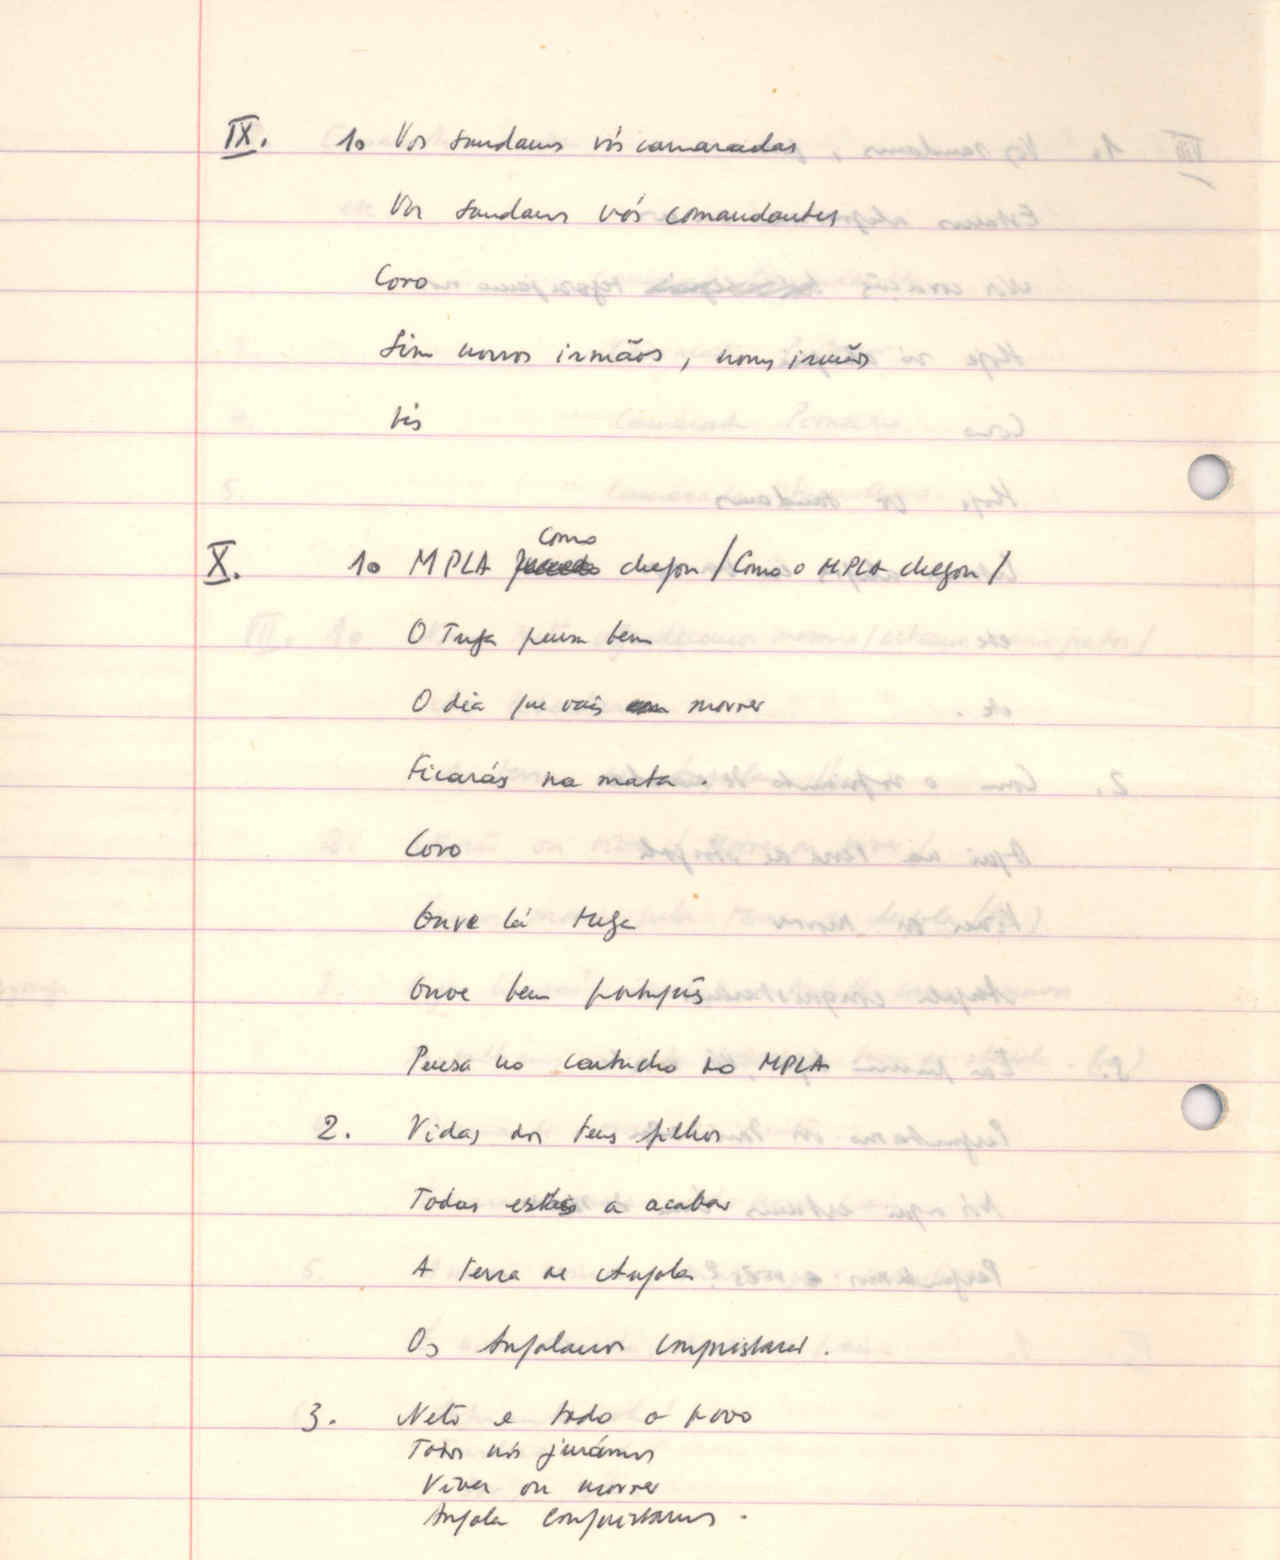 IX. 1º Vos saudamos vós camaradas
Vos saudamos vós comandantes
Coro
Sim nossos irmãos, nossos irmãos
bis
como
X. 1º MPLA chegou / Como o MPLA chegou /
O Tuga pensa bem
O dia que vais morrer
Ficarás na mata.
Coro
Ouve lá tuga
Ouve bem português
Pensa no cartucho do MPLA
2. Vidas dos teus filhos
Todas estão a acabar
A terra de Angola
Os Angolanos conquistarei.
3. Neto e todo o povo
Todos nós jurámos
Viver ou morrer
Angola conquistamos.